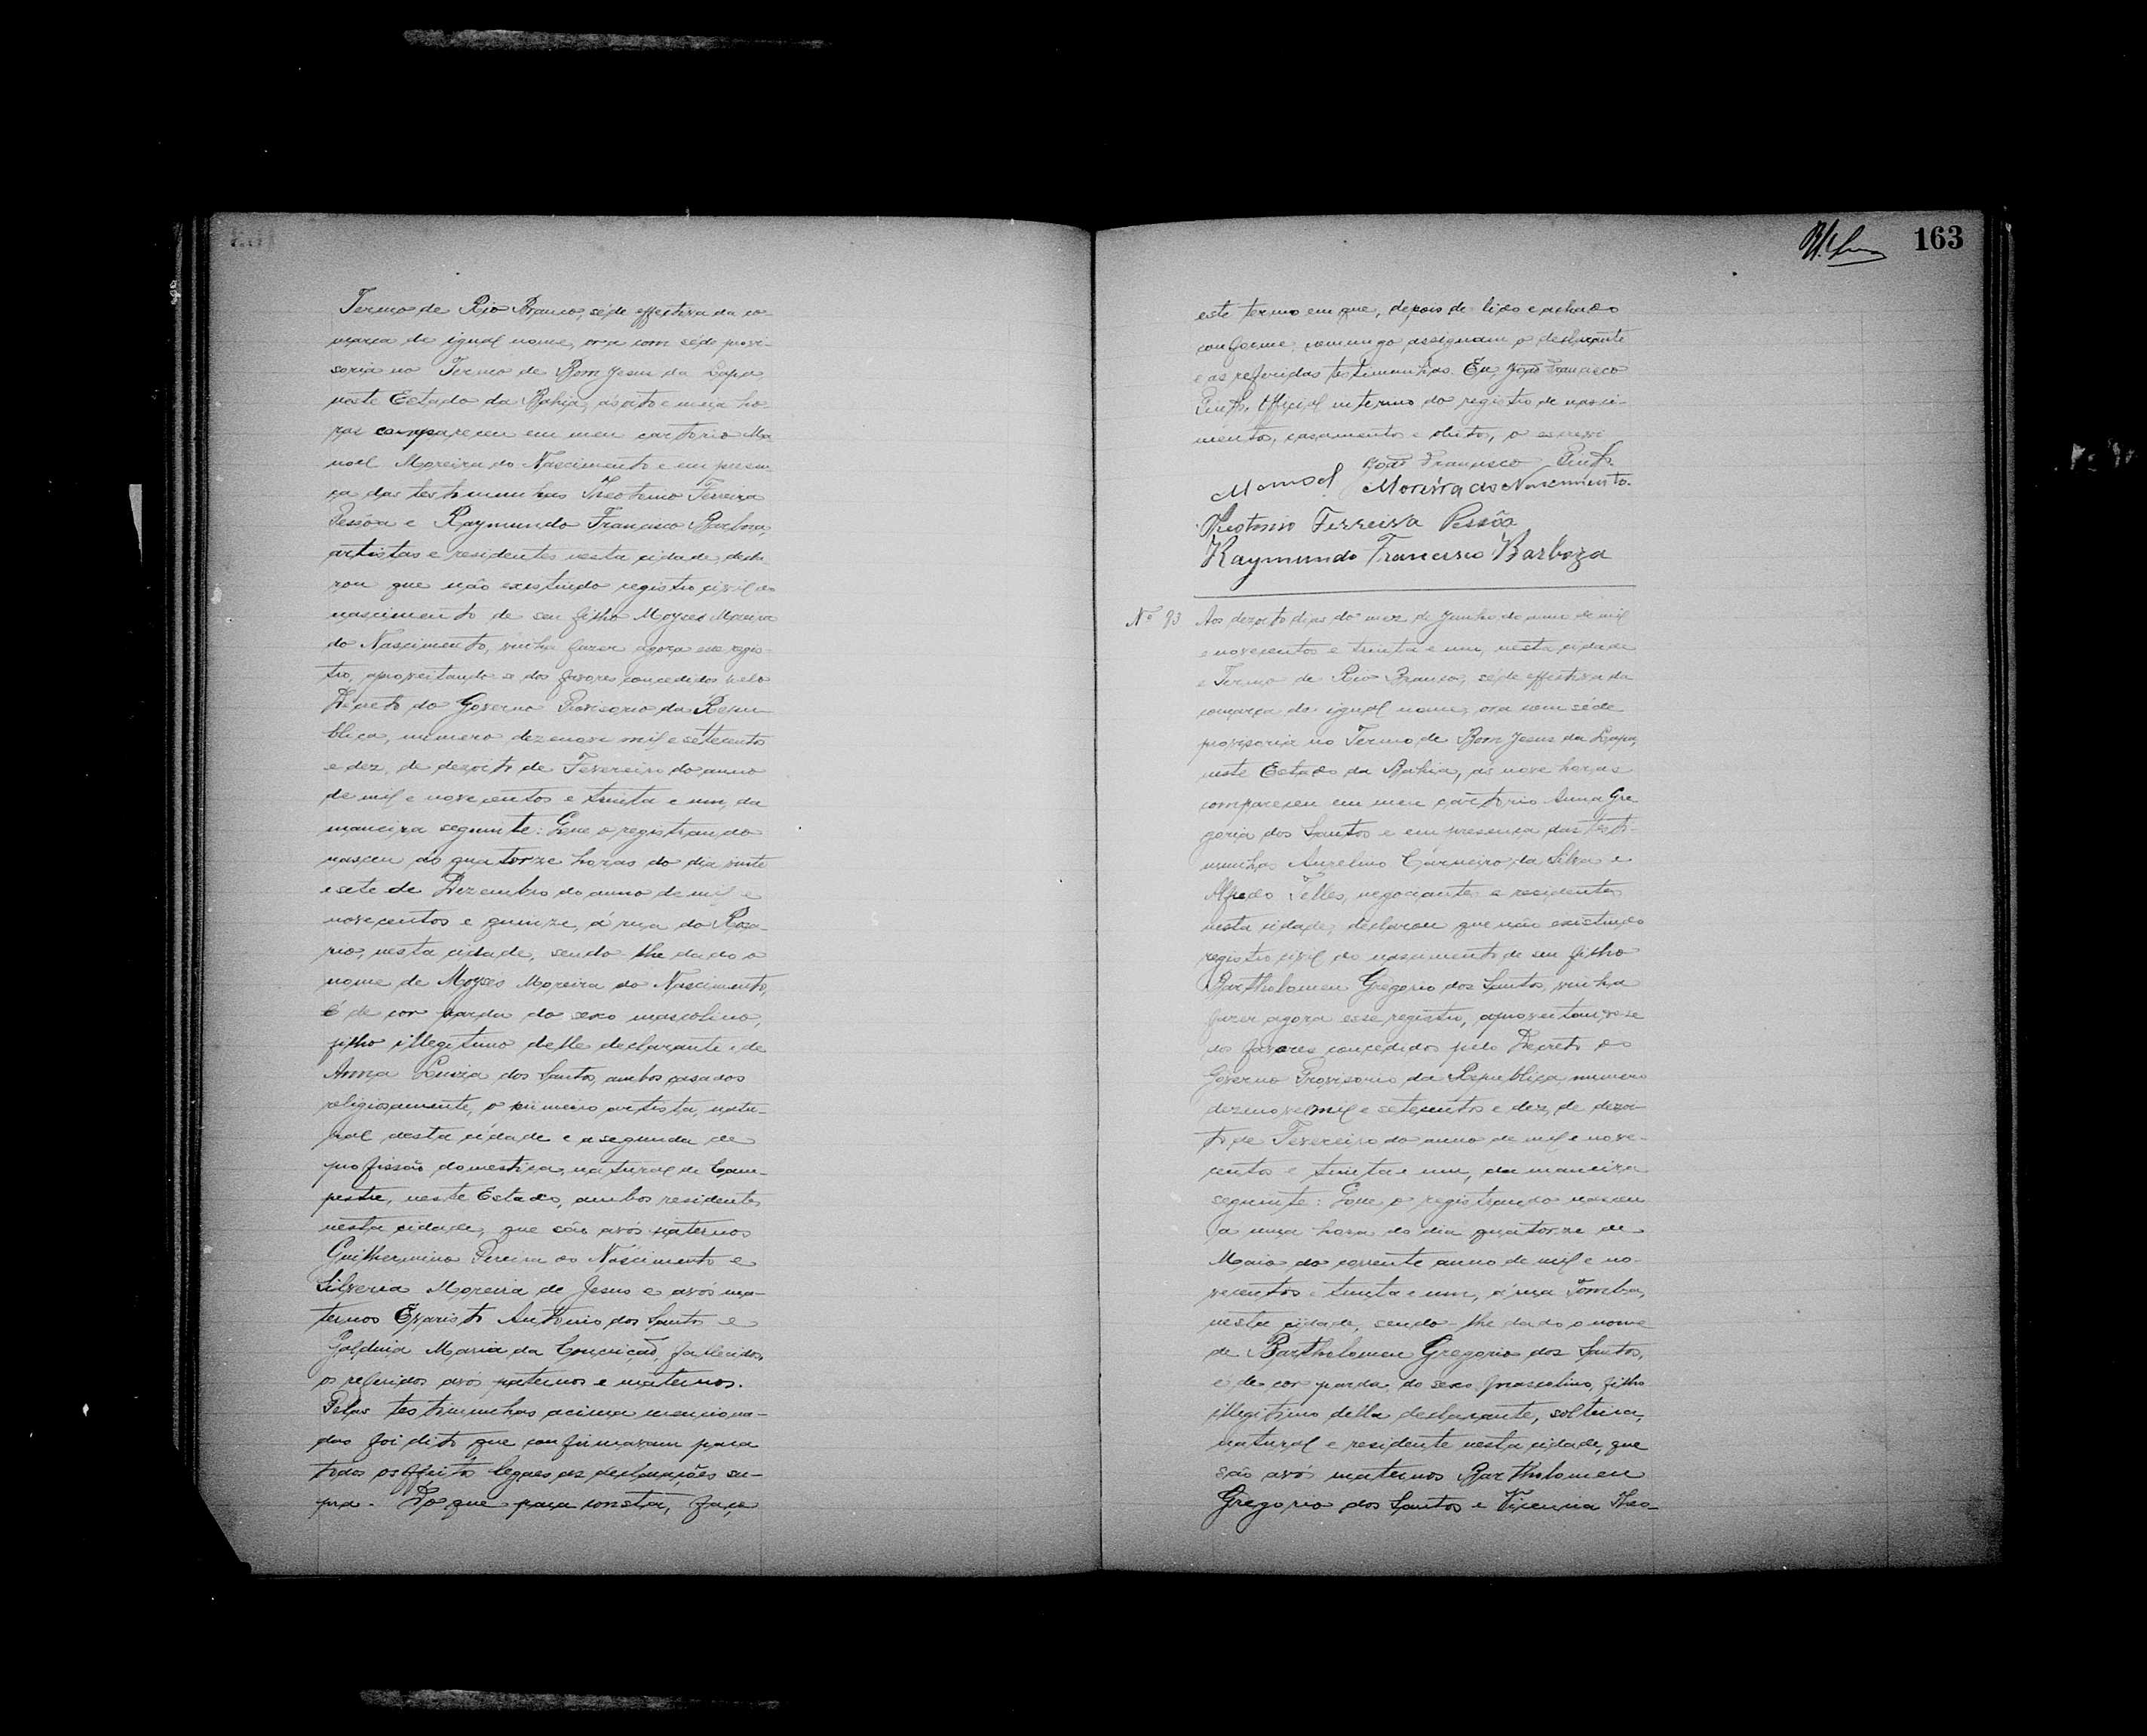 Termo de Rio Branco, séde effectiva da co-
marca de igual nome, ora com séde provi-
soria no Termo de Bom Jesus da Lapa,
neste Estado da Bahia, ás oito e meia ho-
ras compareceu em meu cartorio Ma
noel Moreira do Nascimento e em presen-
ça das testimunhas Theotonio Ferreira
Pessôa e Raymundo Francisco Barboza,
artistas e residentes nesta cidade, decla
rou que não existindo registro civil do
nascimento de seu filho Moyses Moreira
do Nascimento, vinha fazer agora esse regis-
tro, aproveitando-se dos favores concedidos pelo
Decreto do Governo Provisorio da Repu-
blica, numero dezenove mil e setecentos
e dez, de dezoito de Fevereiro do anno
de mil e novecentos e trinta e um, da
maneira seguinte: Que o registrando
nasceu ás quatorze horas do dia vinte
e sete de Dezembro do anno de mil e
novecentos e quinze, á rua do Rosa-
rio, nesta cidade, sendo-lhe dado o
nome de Moyses Moreira do Nascimento,
é de cor parda do sexo mascolino,
filho illegitimo delle declarante e de
Anna Luiza dos Santos, ambos casados
religiosamente, o primeiro artista, natu-
ral desta cidade e a segunda de
profissão domestica, natural de Cam-
pestre, neste Estado, ambos residentes
nesta cidade, que são avós paternos
Guilhermino Pereira do Nascimento e
Silveria Moreira de Jesus e avós ma-
ternos Evaristo Antonio dos Santos e
Galdina Maria da Conceição, fallecidos
os referidos avós paternos e maternos.
Pelas testimunhas acima menciona-
das foi dito que confirmavam para
todos os effeitos legaes as declarações su-
pra. Do que para constar, faço
163
este termo em que, depois de lido e achado
conforme, commigo assignam o declarante
e as referidas testimunhas. Eu, João Francisco
Official interino do registro de nasci-
mento, casamento e obitos, o escrevi
João Francisco
Manoel Moreira do Nascimento.
Theotonio Ferreira Pessôa
Raymundo Francisco Barboza
Nº 93 Aos dezoito dias do mez de Junho do anno de mil
e novecentos e trinta e um, nesta cidade
e Termo de Rio Branco, séde effectiva da
comarca de igual nome, ora com séde
provisoria no Termo de Bom Jesus da Lapa,
neste Estado da Bahia, ás nove horas
compareceu em meu cartorio Anna Gre
goria dos Santos e em presença das testi-
munhas Aurelino Carneiro da Silva e
Alfredo Telles, negociantes e residentes
nesta cidade, declarou que não existindo
registro civil do nascimento de seu filho
Bartholomeu Gregorio dos Santos, vinha
fazer agora esse registro, aproveitando-se
dos favores concedidos pelo Decreto do
Governo Provisorio da Republica numero
dezenove mil e setecentos e dez, de dezoi-
to de Fevereiro do anno de mil e nove-
centos e trinta e um, da maneira
seguinte: Que o registrando nasceu
a uma hora do dia quatorze de
Maio do corrente anno de mil e no-
vecentos e trinta e um, á rua Tomba,
nesta cidade, sendo-lhe dado o nome
de Bartholomeu Gregorio dos Santos,
é de cor parda do sexo mascolino, filho
illegitimo della declarante, solteira,
natural e residente nesta cidade, que
são avós maternos Bartholomeu
Gregorio dos Santos e Vicencia Theo-